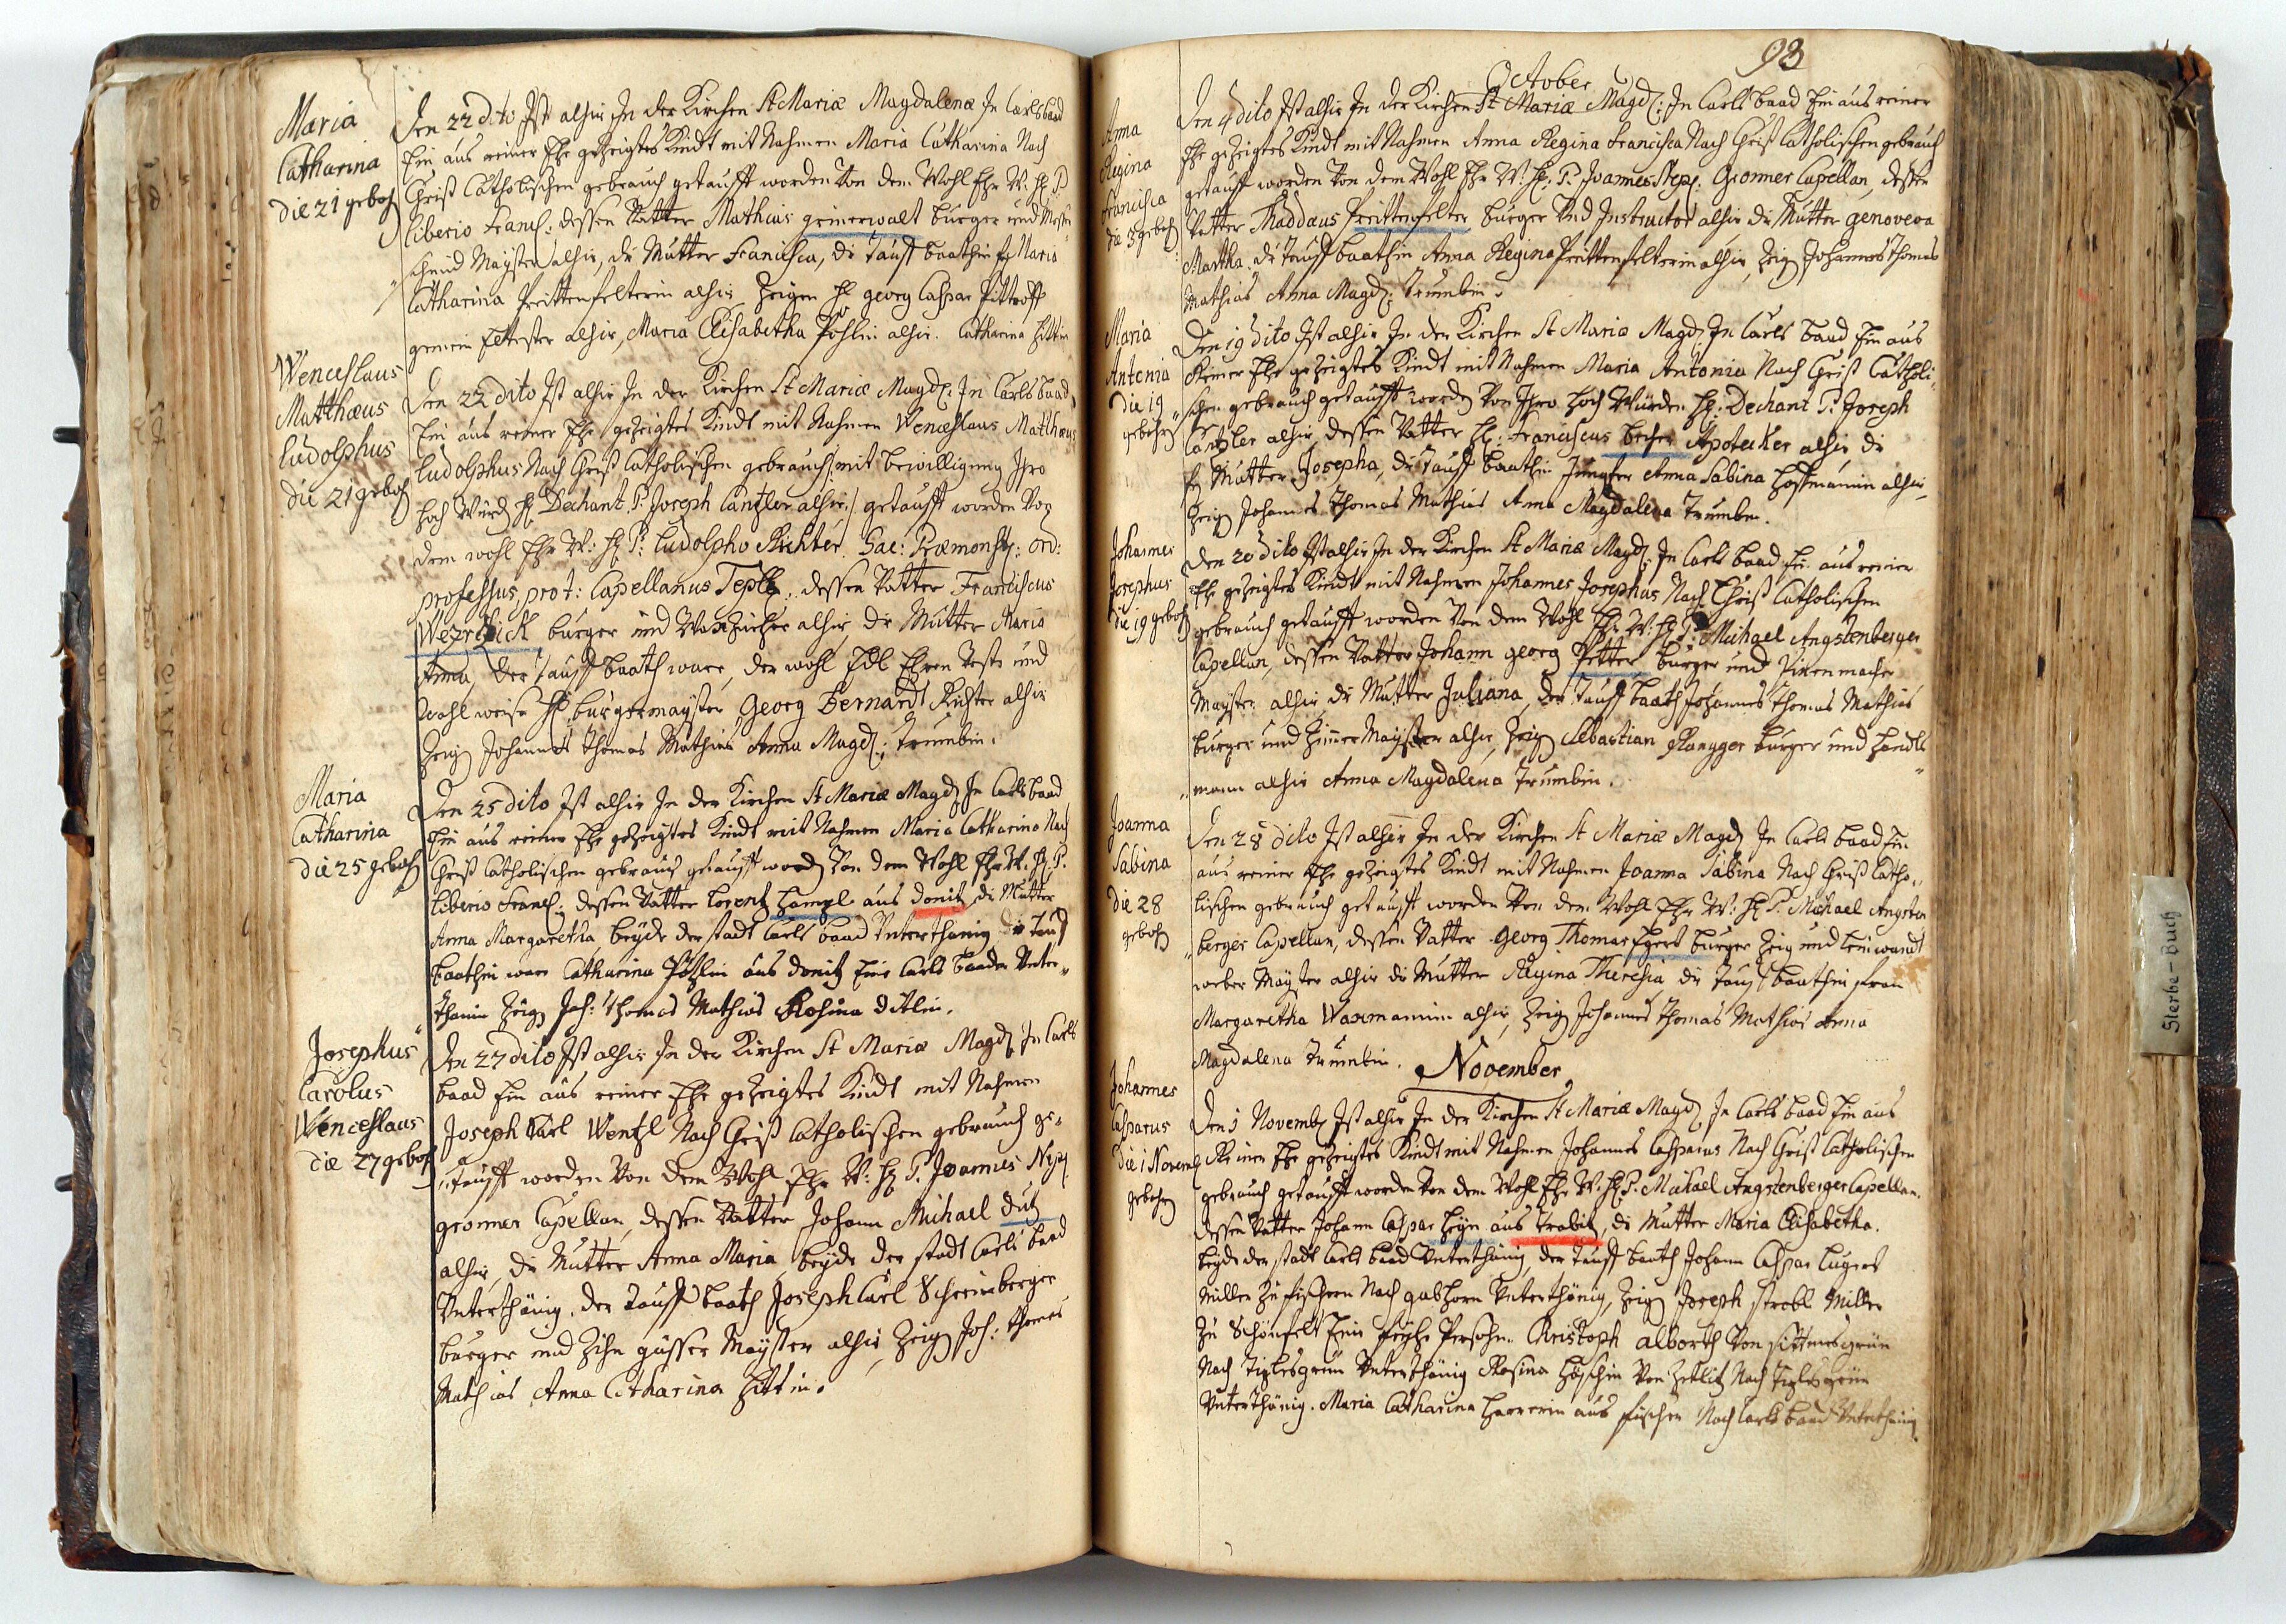 Maria
Catharina
die 21 geboh
Den 22 dito Ist alhir In der Kirchen St Mariæ Magdalenæ In Carlsbaad
Ein aus reiner Ehe gezeigtes Kindt mit Nahmen Maria Catharina Nach
Christ Catholischen gebrauch getaufft worden Von dem Wohl Ehr W: H: P:
liberio Franc: dessen Vatter Mathias grinerwalt burger und Messer
schmid Mayster alhir, di Mutter Francisca, di tauff baathin Fr Maria
Catharina Preittenfelterin alhir Zeigen H georg Caspar Pittroff
gemein Eltester alhir, Maria Elisabetha Pöhlin alhir. Catharina Hittin
Wenceslaus
Matthæus
ludolphus
die 21 geboh
Den 22 dito Ist alhir In der Kirchen St Mariæ Magd: In Carlsbaad
Ein aus reiner Ehe gezeigtes Kindt mit Nahmen Wenceslaus Matthæus
ludolphus Nach Christ Catholischen gebrauch mit bewilligung Ihro
Hoch Würd H Dechant P: Joseph Cantzler alhir / getaufft worden Von
dem wohl Ehr W: H P: ludolpho Richter Sac: Præmonst: ord:
professus, pro t: Capellanus Tepll: dessen Vatter Franciscus
Wezrchick burger und Waxzieher alhir di Mutter Maria
Anna, der tauff baath ware, der wohl Edl Ehren Veste und
Wohl weise H burgermayster Georg Bernardt Richter alhir
Zeig Johannes Thomas Mathias Anna Magd: Trumbin.
Maria
Catharina
die 25 geboh
Den 25 dito Ist alhir In der Kirchen St Mariæ Magd In Carlsbaad
Ein aus reiner Ehe gezeigtes Kindt mit Nahmen Maria Catharina Nach
Christ Catholischen gebrauch getaufft word Von dem Wohl Ehr W: H P.
liberio Franc: dessen Vatter lorentz Hampl aus donitz di Mutter
Anna Margaretha beyde der stadt Carls baad Unterthanig di tauf
baathin ware Catharina Pötzlin aus donitz Eine Carls baader Unter„
thanin Zeig Joh: Thomas Mathias Rosina ditlin.
Josephus
Carolus
Wenceslaus
die 27 geboh
Den 27 dito Ist alhir In der Kirchen St Mariæ Magd In Carls
baad Ein aus reiner Ehe gezeigtes Kindt mit Nahmen
Joseph Carl Wentzl Nach Christ Catholischen gebrauch ge„
„taufft worden Von dem Wohl Ehr W: H P. Joannes Nep
gronner Capellan, dessen Vatter Johann Michael dutz
alhir, di Mutter Anna Maria, beyde der stadt Carls baad
Unterthänig. der tauff baath Joseph Carl Schreinberger
burger und Zihn güsser Mayster alhir Zeig Joh: Thomas
Mathias Anna Catharina Hittin.
93
October
Anna
Regina
Francisca
die 3 geboh
Den 4 dito Ist alhir In der Kirchen St Mariæ Magd: In Carls baad Ein aus reiner
Ehe gezeigtes Kindt mit Nahmen Anna Regina Francisca Nach Christ Catholischen gebrauch
getauft worden Von dem Wohl Ehr W: H: P: Joannes Nep: Gronner Capellan, dessen
Vatter Thaddæus Preittenfelter burger Und Instructor alhir di Mutter genoveva
Martha, di tauff baathin Anna Regina Preittenfelterin alhir, Zeig Johannes Thomas
Mathias Anna Magd: Trumbin.
Maria
Antonia
die 19
gebohr
Den 19 dito Ist alhir In der Kirchen St Mariæ Magd In Carls baad Ein aus
Reiner Ehe gezeigtes Kindt mit Nahmen Maria Antonia Nach Christ Catholi„
„schen gebrauch getaufft word Von Ihro Hoch Würden H: Dechant P: Joseph
Cantzler alhir, dessen Vatter H: Franciscus becher Apotecker alhir di
Fr Mutter Josepha, di tauff baathin Jungfer Anna Sabina Hoffmanin alhir,
Zeig Johannes Thomas Mathias Anna Magdalena Trumbin.
Johannes
Josephus
die 19 geboh
Den 20 dito Ist alhir In der Kirchen St Mariæ Magd: In Carls baad Ein aus reiner
Ehe gezeigtes Kindt mit Nahmen Johannes Josephus Nach Christ Catholischen
gebrauch getaufft worden Von dem Wohl Ehr W: H P: Michael Angstenberger
Capellan, dessen Vatter Johann georg Petter burger und Pixenmacher
Mayster alhir di Mutter Juliana, der tauff baath Johannes Thomas Mathias
burger und Zimer Mayster alhir, Zeig Sebastian Plangger burger und Handls
„mann alhir Anna Magdalena Trumbin.
Joanna
Sabina
die 28
geboh
Den 28 dito Ist alhir In der Kirchen St Mariæ Magd In Carls baad Ein
aus reiner Ehe gezeigtes Kindt mit Nahmen Joanna Sabina Nach Christ Catho„
lischen gebrauch getaufft worden Von dem Wohl Ehr W: H P. Michael Angsten
„berger Capellan, dessen Vatter Georg Thomas Egert burger Zeig und leinwandt
weber Mayster alhir di Mutter Regina Theresia, di tauf baathin Frau
Margaretha Waxmannin alhir, Zeig Johannes Thomas Mathias Anna
Magdalena Trumbin.
November
Johannes
Casparus
die 1 Novemb
geboh
Den 1 Novemb Ist alhir In der Kirchen St Mariæ Magd In Carls baad Ein aus
Reiner Ehe gezeigtes Kindt mit Nahmen Johannes Casparus Nach Christ Catholischen
gebrauch getaufft worden Von dem Wohl Ehr W: H P. Michael Angstenberger Capellan.
dessen Vatter Johann Caspar Heyn aus trabitz, di Mutter Maria Elisabetha.
beyde der stadt Carls baad Unterthänig, der tauff baath Johann Caspar lugert
Miller zu fischern Nach gabhorn Unterthänig, Zeig Joseph strobl Miller
zu Schönfelt Eine freyhe Persohn. Kristoph alborth Von sittmesgrün
Nach Tiplesgrün Unterthänig Rosina Höschin Von Zetlitz Nach Tiplesgrün
Unterthänig. Maria Catharina Harrerin aus fischern Nach Carls baad Unterthänig
Sterbe-Buch